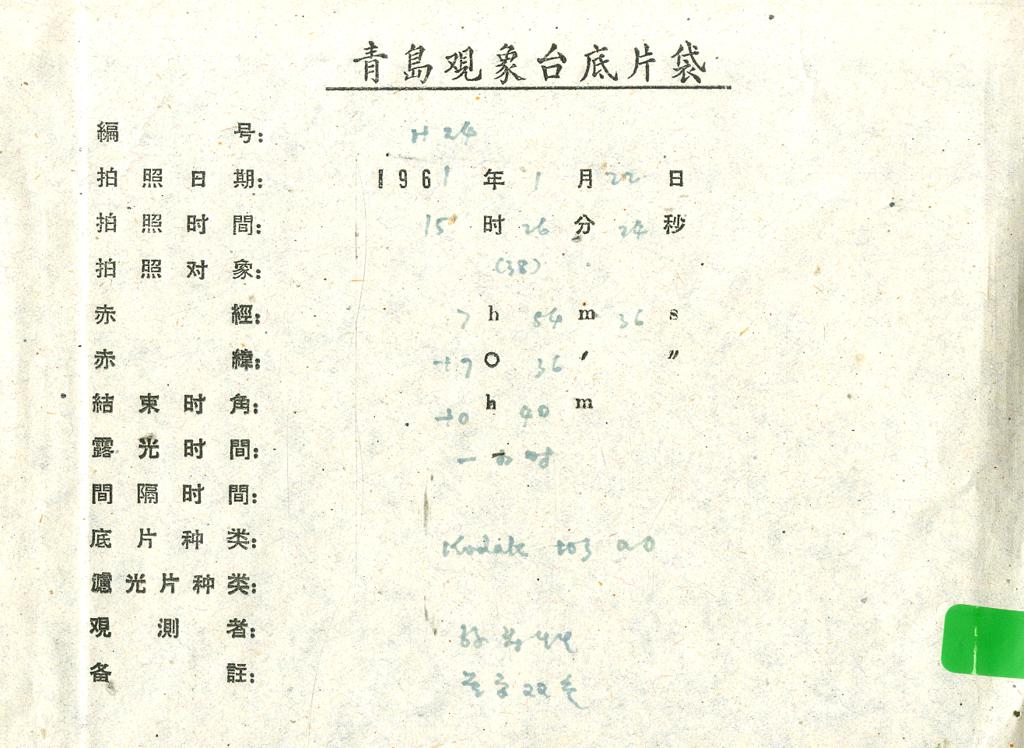 青島观象台底片袋
編号: H 24
拍照日期: 1961年1月22日
拍照时間: 15时26分24秒
拍照对象: (38)
赤經: 7h 54m 36s
赤緯: +7° 36′ ″
結束时角: +0h 40m
露光时間: 一小时
間隔时間:
底片种类: Kodak 103 a O
濾光片种类:
观測者:
备註: